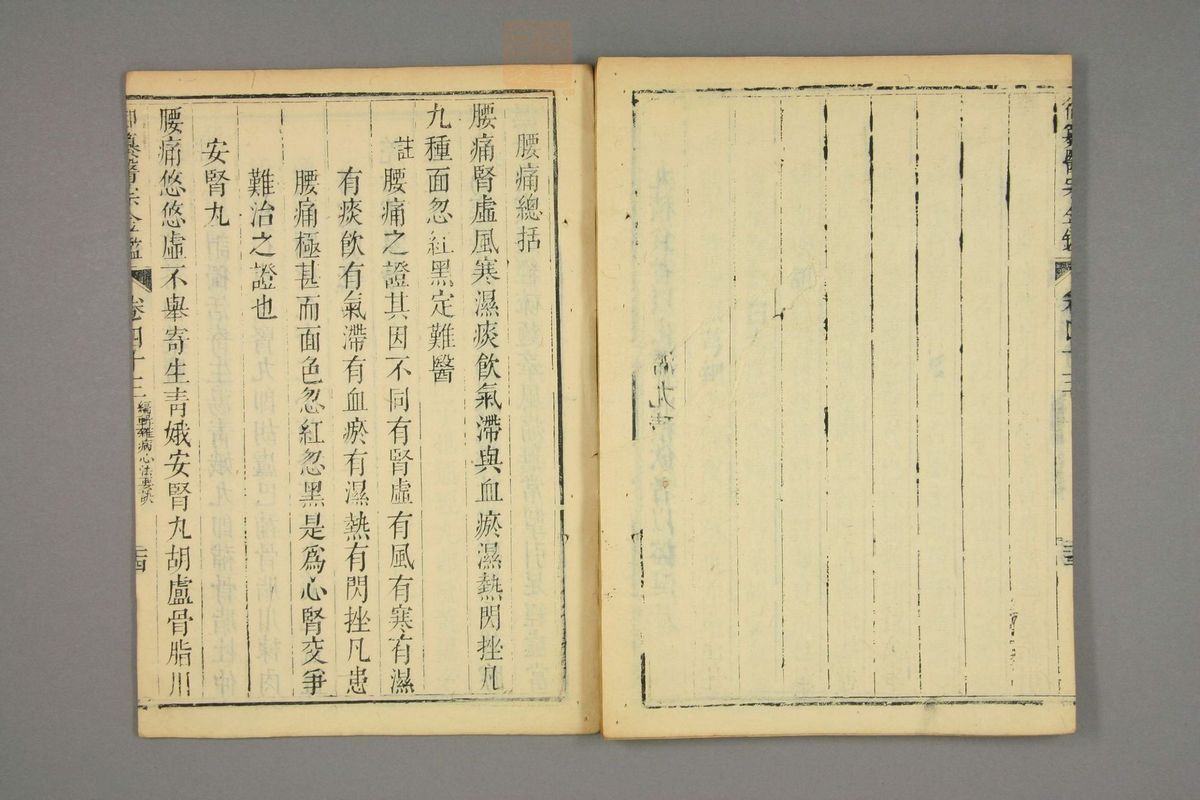 御纂醫宗金鑑 卷四十三
腰痛總括
腰痛腎虛風寒濕痰飲氣滯與血瘀濕熱閃挫凡
九種面忽紅黑定難醫
註腰痛之證其因不同有腎虛有風有寒有濕
有痰飲有氣滯有血瘀有濕熱有閃挫凡患
腰痛極甚而面色忽紅忽黑是爲心腎交爭
難治之證也
安腎丸
腰痛悠悠虛不舉寄生靑娥安腎丸胡盧骨脂川
御纂醫宗金鑑 卷四十三 編輯雜病心法要訣 二四